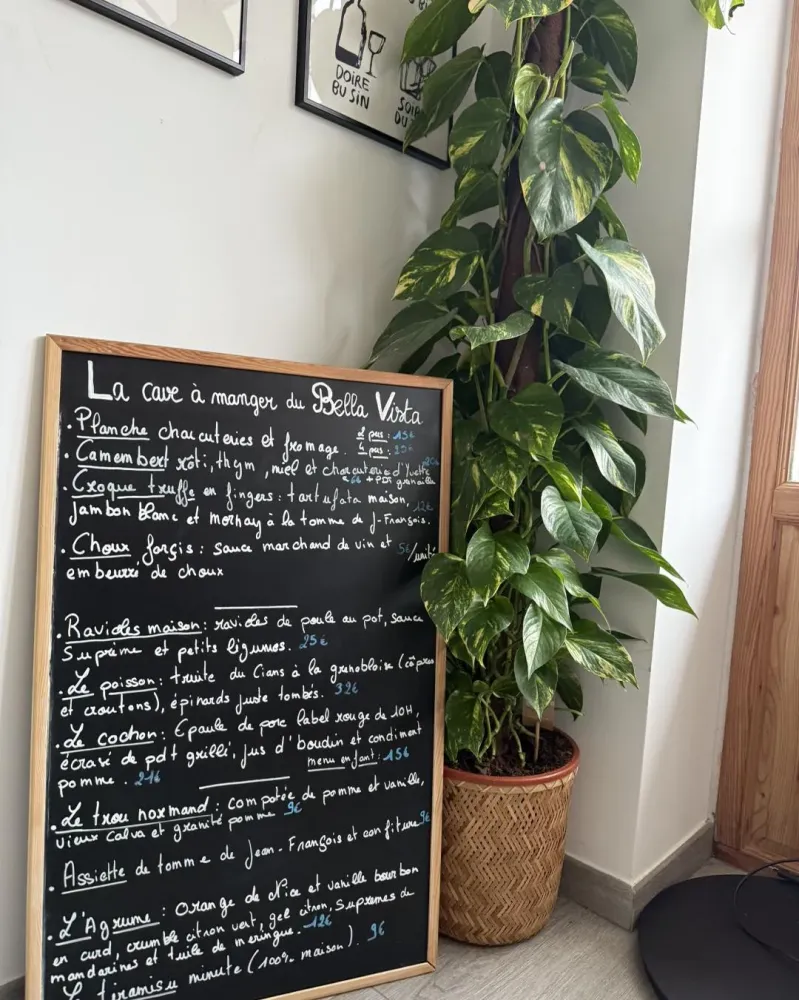 DOIRE
BU SIN
La cave à manger du Bella Vista
. Planche charcuteries et fromage. 2 pers : 15€
4 pers : 25€
. Camembert rôti, thym, miel et charcuterie d'Yvette
+ PDT grenaille
. Croque truffe en fingers : tartufata maison, 12€
Jambon blanc et mornay à la tomme de J-François.
. Choux farçis : sauce marchand de vin et 5€/unité
embeurré de choux
. Ravioles maison : ravioles de poule au pot, sauce
Suprème et petits légumes. 25€
. Le poisson : truite du Cians à la grenobloise (câpres
et croutons), épinards juste tombés. 32€
. Le cochon : Epaule de porc label rouge de 10H,
écrasé de pdt grillé, jus d'boudin et condiment
pomme. 21€ menu enfant : 15€
. Le trou normand : compotée de pomme et vanille,
vieux Calva et granité pomme 9€
. Assiette de tomme de Jean-François et confiture 9€
. L'Agrume : Orange de Nice et vanille bourbon
en curd, crumble citron vert, gel citron, Suprèmes de
mandarines et tuile de meringue. 12€
Le tiramisu minute (100% maison). 9€